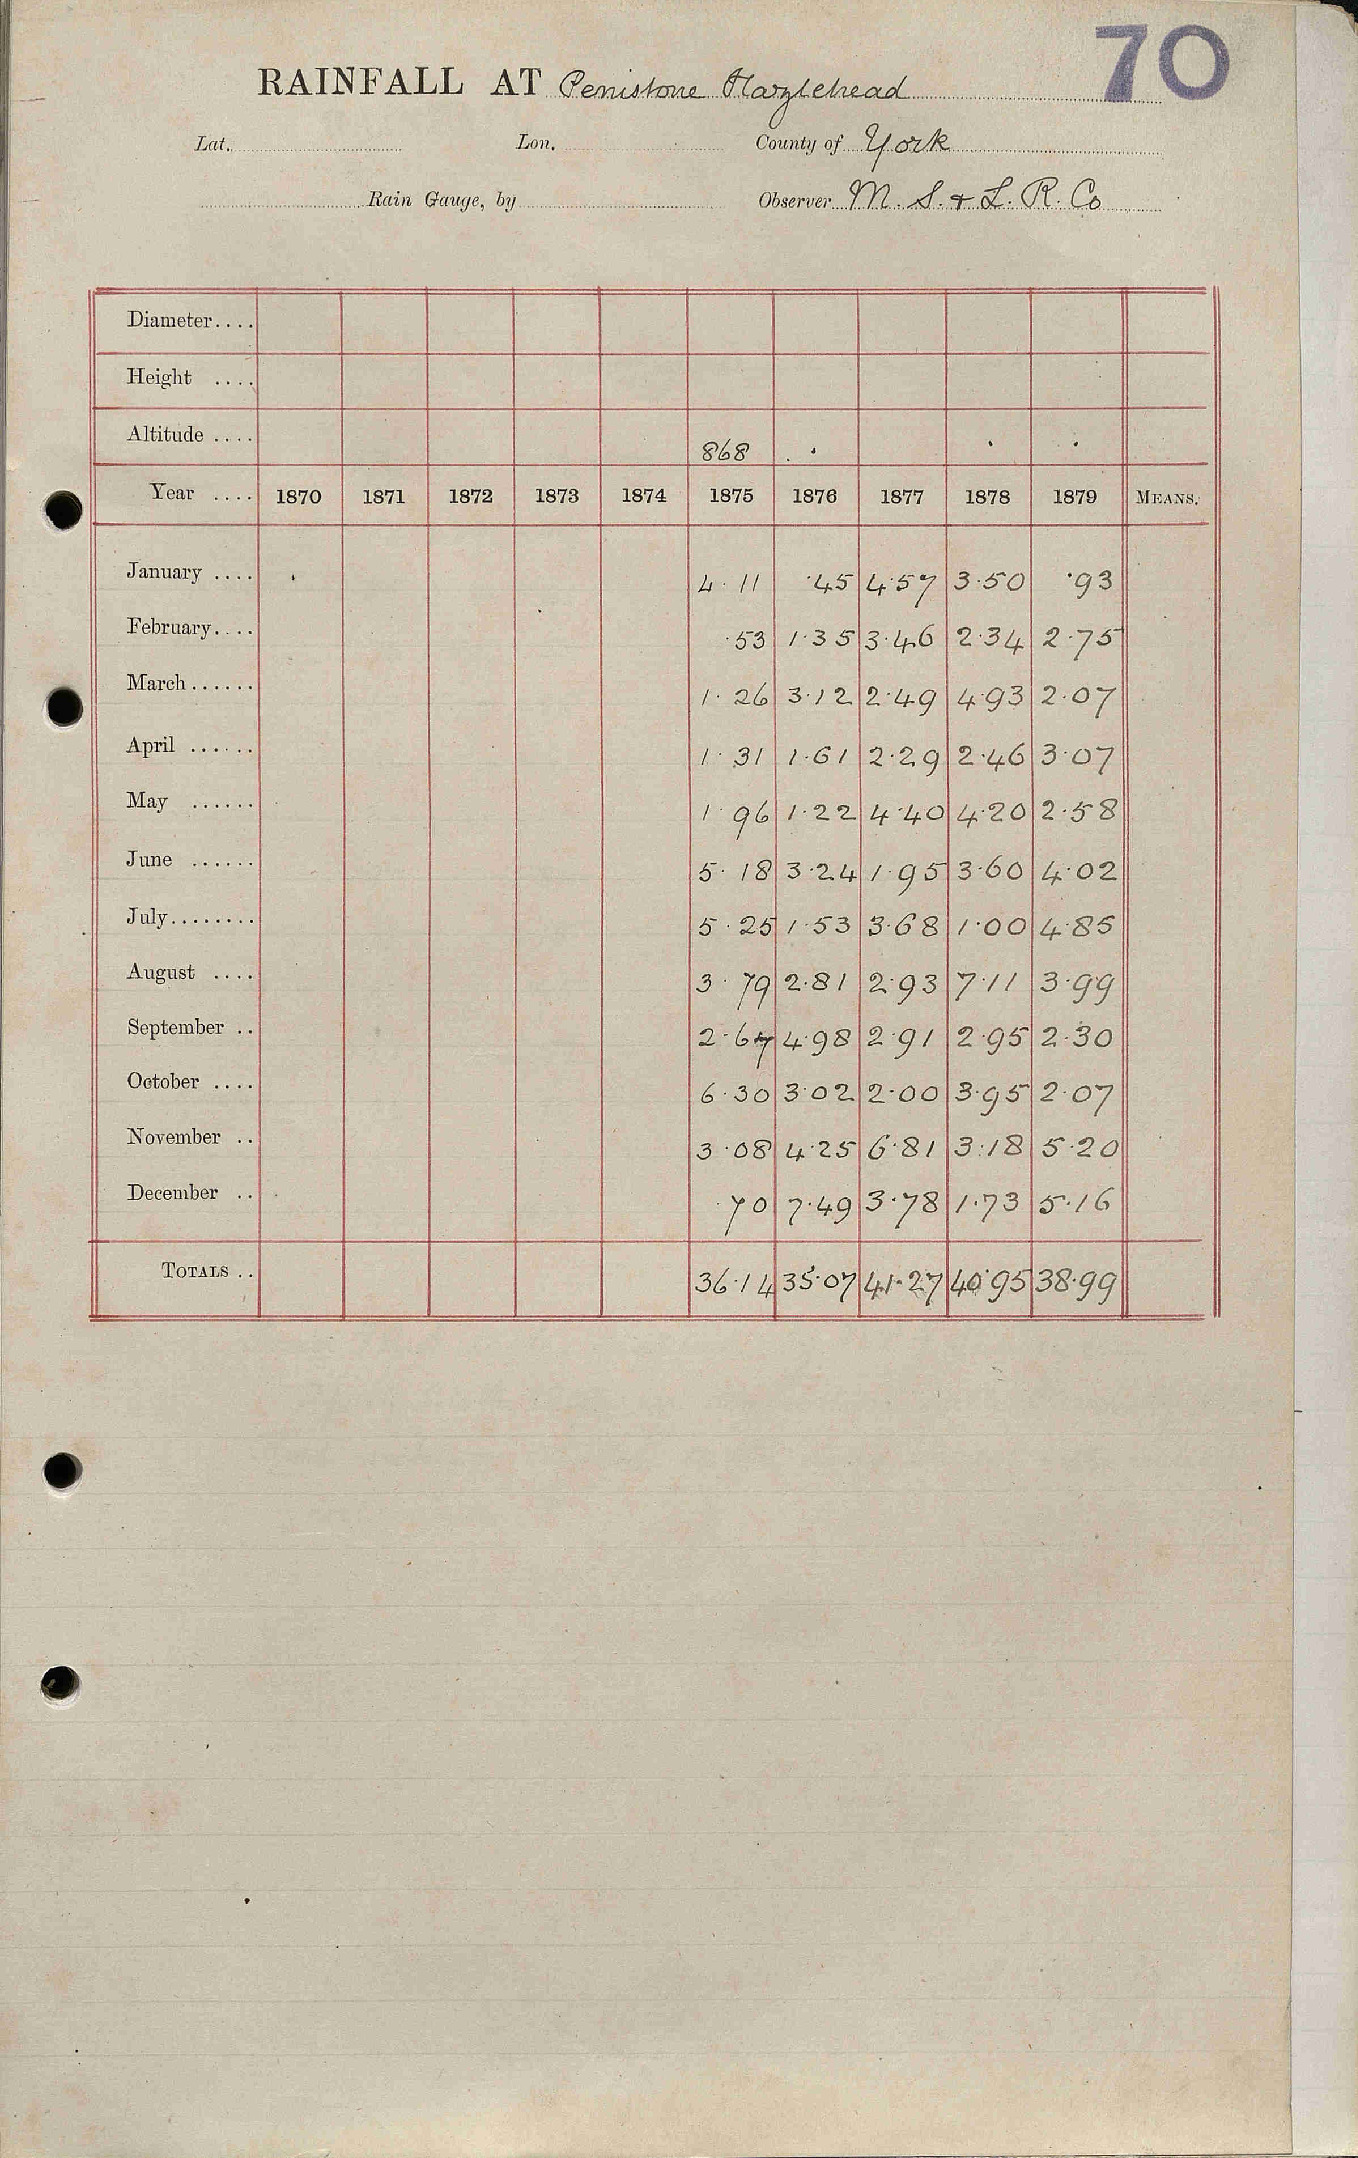 70
RAINFALL AT Penistone Hazlehead
Lat. Lon. County of York
Rain Gauge, by Observer M. S. & L. R. Co
Diameter....
Height ....
Altitude .... 868 . .
Year .... 1870 1871 1872 1873 1874 1875 1876 1877 1878 1879 MEANS.
January .... 4·11 ·45 4·57 3·50 ·93
February.... ·53 1·35 3·46 2·34 2·75
March...... 1·26 3·12 2·49 4·93 2·07
April ...... 1·31 1·61 2·29 2·46 3·07
May ...... 1·96 1·22 4·40 4·20 2·58
June ...... 5·18 3·24 1·95 3·60 4·02
July........ 5·25 1·53 3·68 1·00 4·85
August .... 3·79 2·81 2·93 7·11 3·99
September .. 2·67 4·98 2·91 2·95 2·30
October .... 6·30 3·02 2·00 3·95 2·07
November .. 3·08 4·25 6·81 3·18 5·20
December .. ·70 7·49 3·78 1·73 5·16
TOTALS .. 36·14 35·07 41·27 40·95 38·99